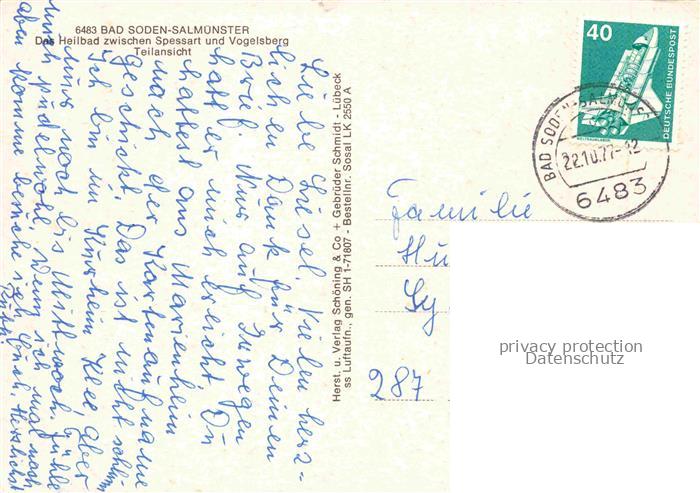 6483 BAD SODEN-SALMÜNSTER
Das Heilbad zwischen Spessart und Vogelsberg
Teilansicht
Liebe Liesel. Vielen herz-
lichen Dank für Deinen
Brief. Nur auf Umwegen
hat er mich erreicht. Du
hattest aus Marienheim
nach der Kartenaufnahme
geschickt. Das ist nicht schlimm
Ich bin im Kurheim Klee aber
nur noch bis Mittwoch, fühle
mich pudelwohl. Wenn ich mal nach
komme besuche ich Euch. Herzlichst
Herst. u. Verlag Schöning & Co + Gebrüder Schmidt · Lübeck
ss Luftaufn., gen. SH 1-71807 - Bestellnr. Sosal LK 2550 A
40
DEUTSCHE BUNDESPOST
BAD SODEN-SALMÜNSTER
22.10.77-12
6483
Familie
Hu
Sy
287
privacy protection
Datenschutz